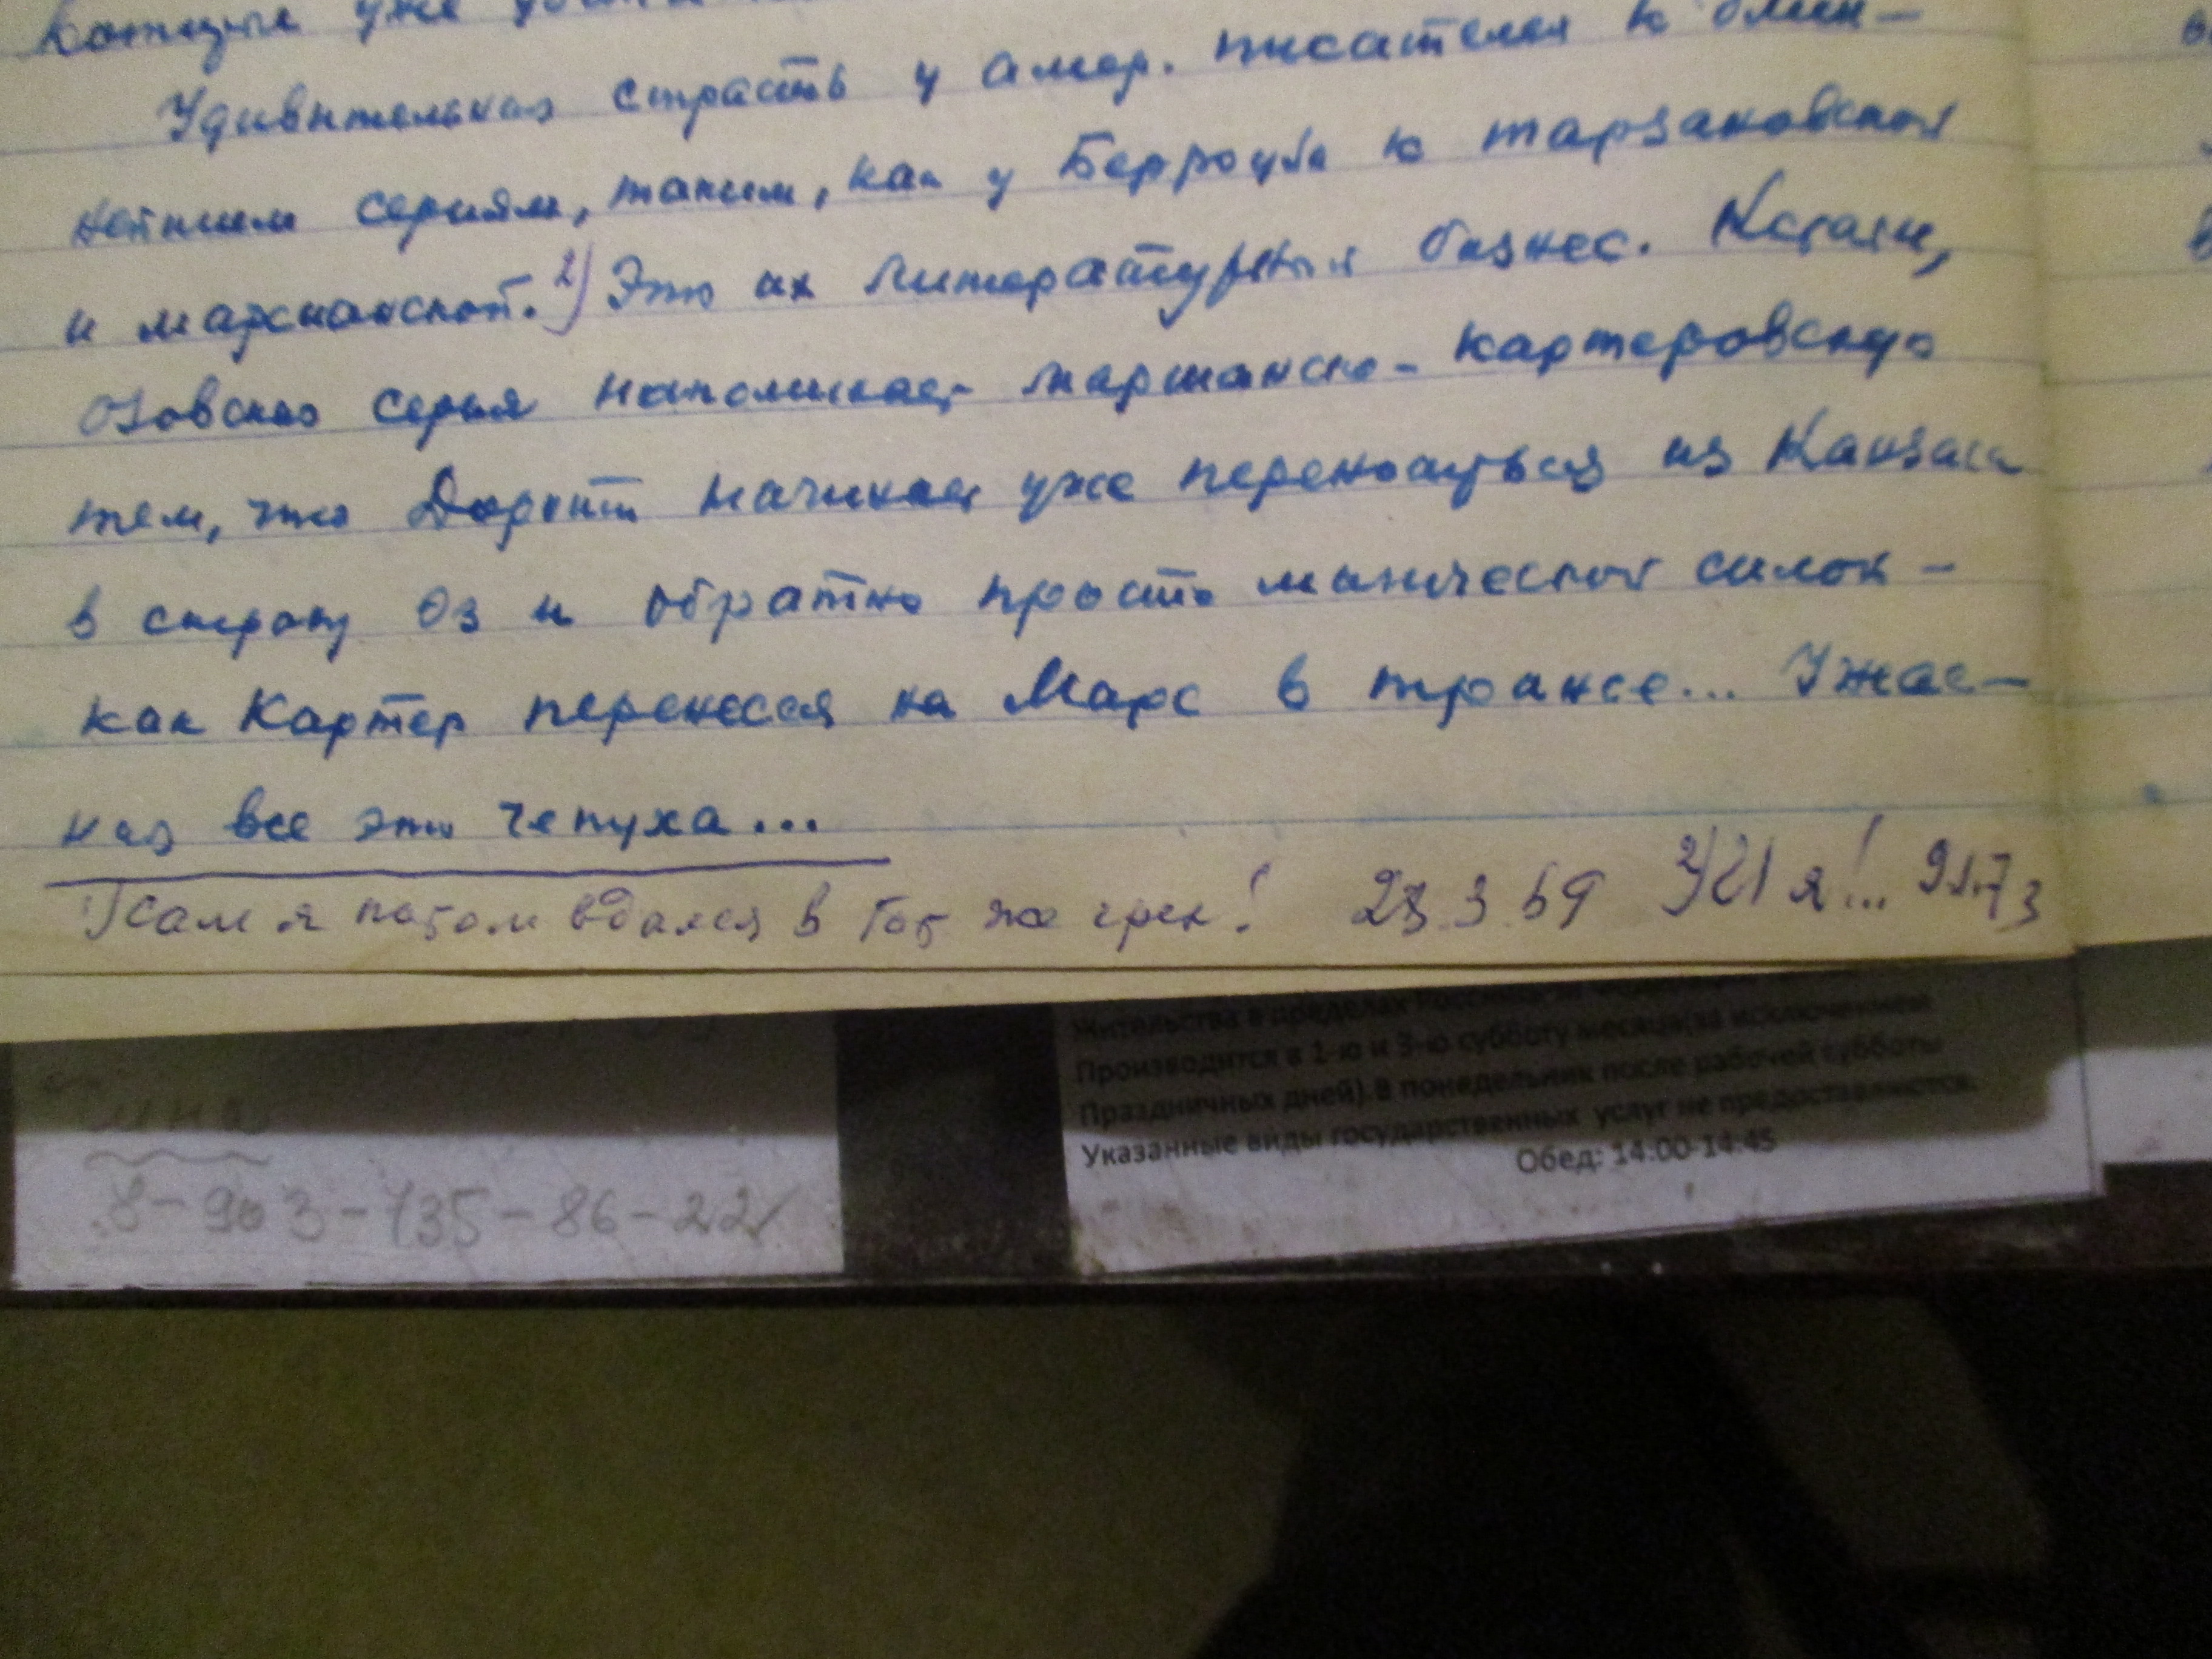 которые уже
Удивительная страсть у амер. писателей к длин-
нейшим сериям, таким, как у Берроуза к тарзановской
и марсианской.²⁾ Это их литературный бизнес. Кстати,
Озовская серия напоминает марсианско-картеровскую
тем, что Дороти начинает уже переноситься из Канзаса
в страну Оз и обратно просто магической силой -
как Картер перенесся на Марс в трансе... Ужас-
ная все это чепуха...
¹⁾ Сам я потом вдался в тот же грех! 23.3.69 ²⁾ И я!... 9.1.73
Жительства в пределах Российской
Производится в 1-ю и 3-ю субботу месяца(за исключением
Праздничных дней).В понедельник после рабочей субботы
Указанные виды государственных услуг не предоставляются.
Обед: 14:00-14:45
8-903-135-86-22